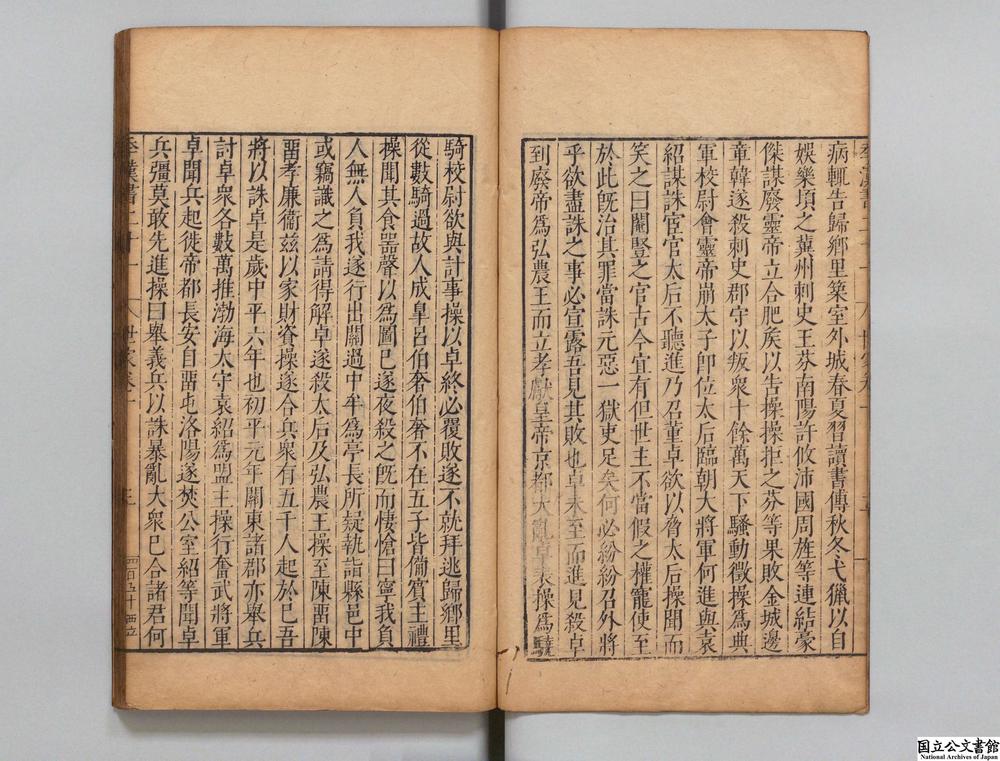 病輒告歸鄉里築室外城春夏習讀書傳秋冬弋獵以自
娛樂頃之冀州刺史王芬南陽許攸沛國周旌等連結豪
傑謀廢靈帝立合肥矦以告操操拒之芬等果敗金城邊
章韓遂殺刺史郡守以叛衆十餘萬天下騷動徵操爲典
軍校尉會靈帝崩太子卽位太后臨朝大將軍何進與袁
紹謀誅宦官太后不聽進乃召董卓欲以脅太后操聞而
笑之曰閹豎之官古今宜有但世主不當假之權寵使至
於此旣治其罪當誅元惡一獄吏足矣何必紛紛召外將
乎欲盡誅之事必宣露吾見其敗也卓未至而進見殺卓
到廢帝爲弘農王而立孝獻皇帝京都大亂卓表操爲驍
騎校尉欲與計事操以卓終必覆敗遂不就拜逃歸鄉里
從數騎過故人成皐呂伯奢伯奢不在五子皆備賓主禮
操聞其食器聲以爲圖已遂夜殺之旣而悽愴曰寧我負
人無人負我遂行出關過中牟爲亭長所疑執詣縣邑中
或竊識之爲請得解卓遂殺太后及弘農王操至陳畱陳
畱孝廉衞茲以家財資操遂合兵衆有五千人起於巳吾
將以誅卓是歲中平六年也初平元年關東諸郡亦舉兵
討卓衆各數萬推渤海太守袁紹爲盟主操行奮武將軍
卓聞兵起徙帝都長安自畱屯洛陽遂焚公室紹等聞卓
兵彊莫敢先進操曰舉義兵以誅暴亂大衆已合諸君何
季漢書二十一 世家卷一 三 四百五十 西立
国立公文書館
National Archives of Japan